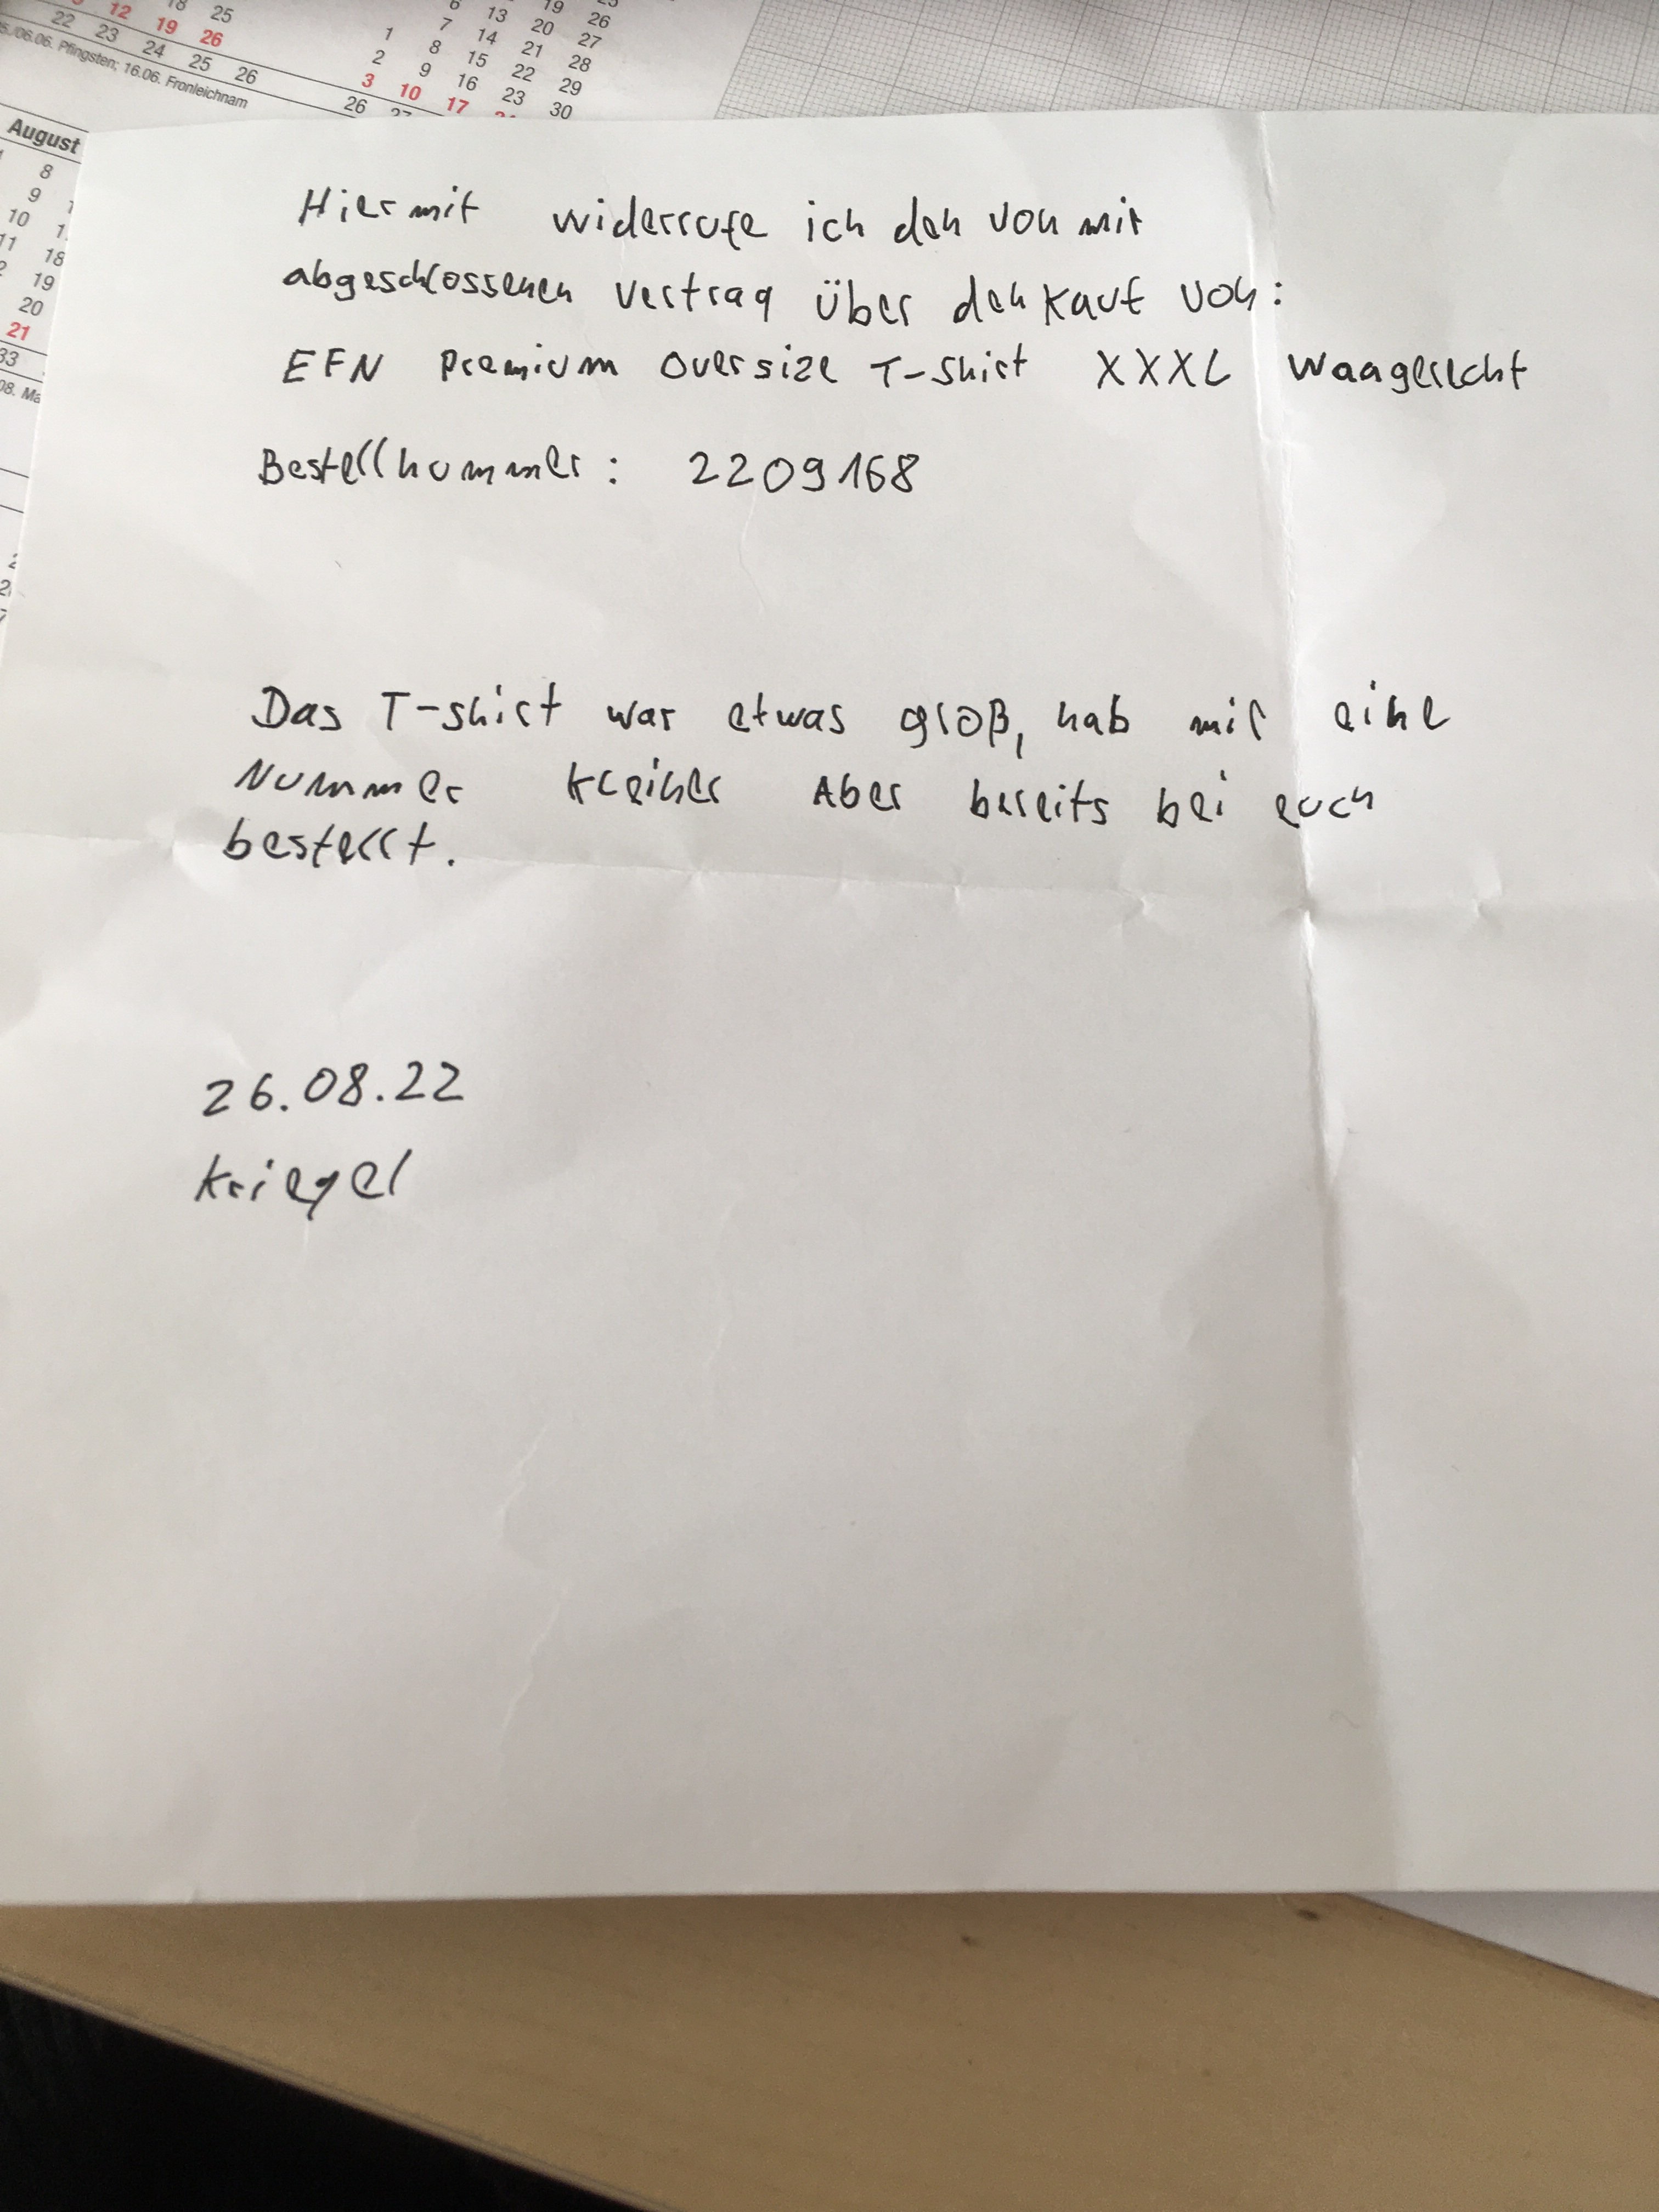 18 25
5 12 19 26
22 23 24 25 26
5./06.06. Pfingsten; 16.06. Fronleichnam
6 13 19 26
1 7 14 20 27
2 8 15 21 28
3 9 16 22 29
10 17 23 30
26 27
August
8
9
10
11 18
19
20
21
33
08. Ma
Hiermit widerrufe ich den von mir
abgeschlossenen Vertrag über den Kauf von:
EFN Premium Oversize T-Shirt XXXL Waagerecht
Bestellnummer: 2209168
Das T-shirt war etwas groß, hab mir eine
Nummer kleiner Aber bereits bei euch
bestellt.
26.08.22
Kriegel